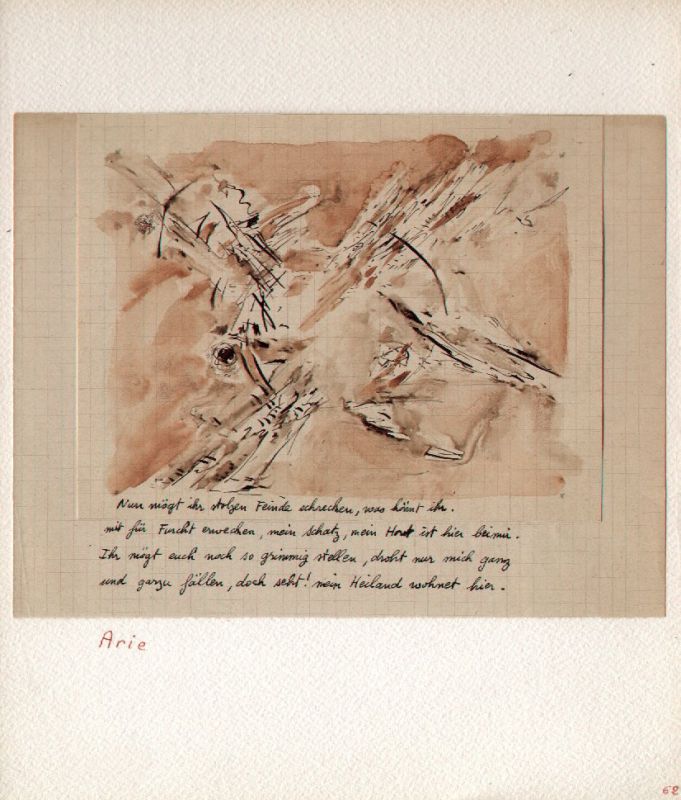 Nun mögt ihr stolzen Feinde schrecken, was könnt ihr.
mit für Furcht erwecken, mein Schatz, mein Hort ist hier bei mir.
Ihr mögt euch noch so grimmig stellen, droht nur mich ganz
und garzu fällen, doch seht! mein Heiland wohnet hier.
Arie
62